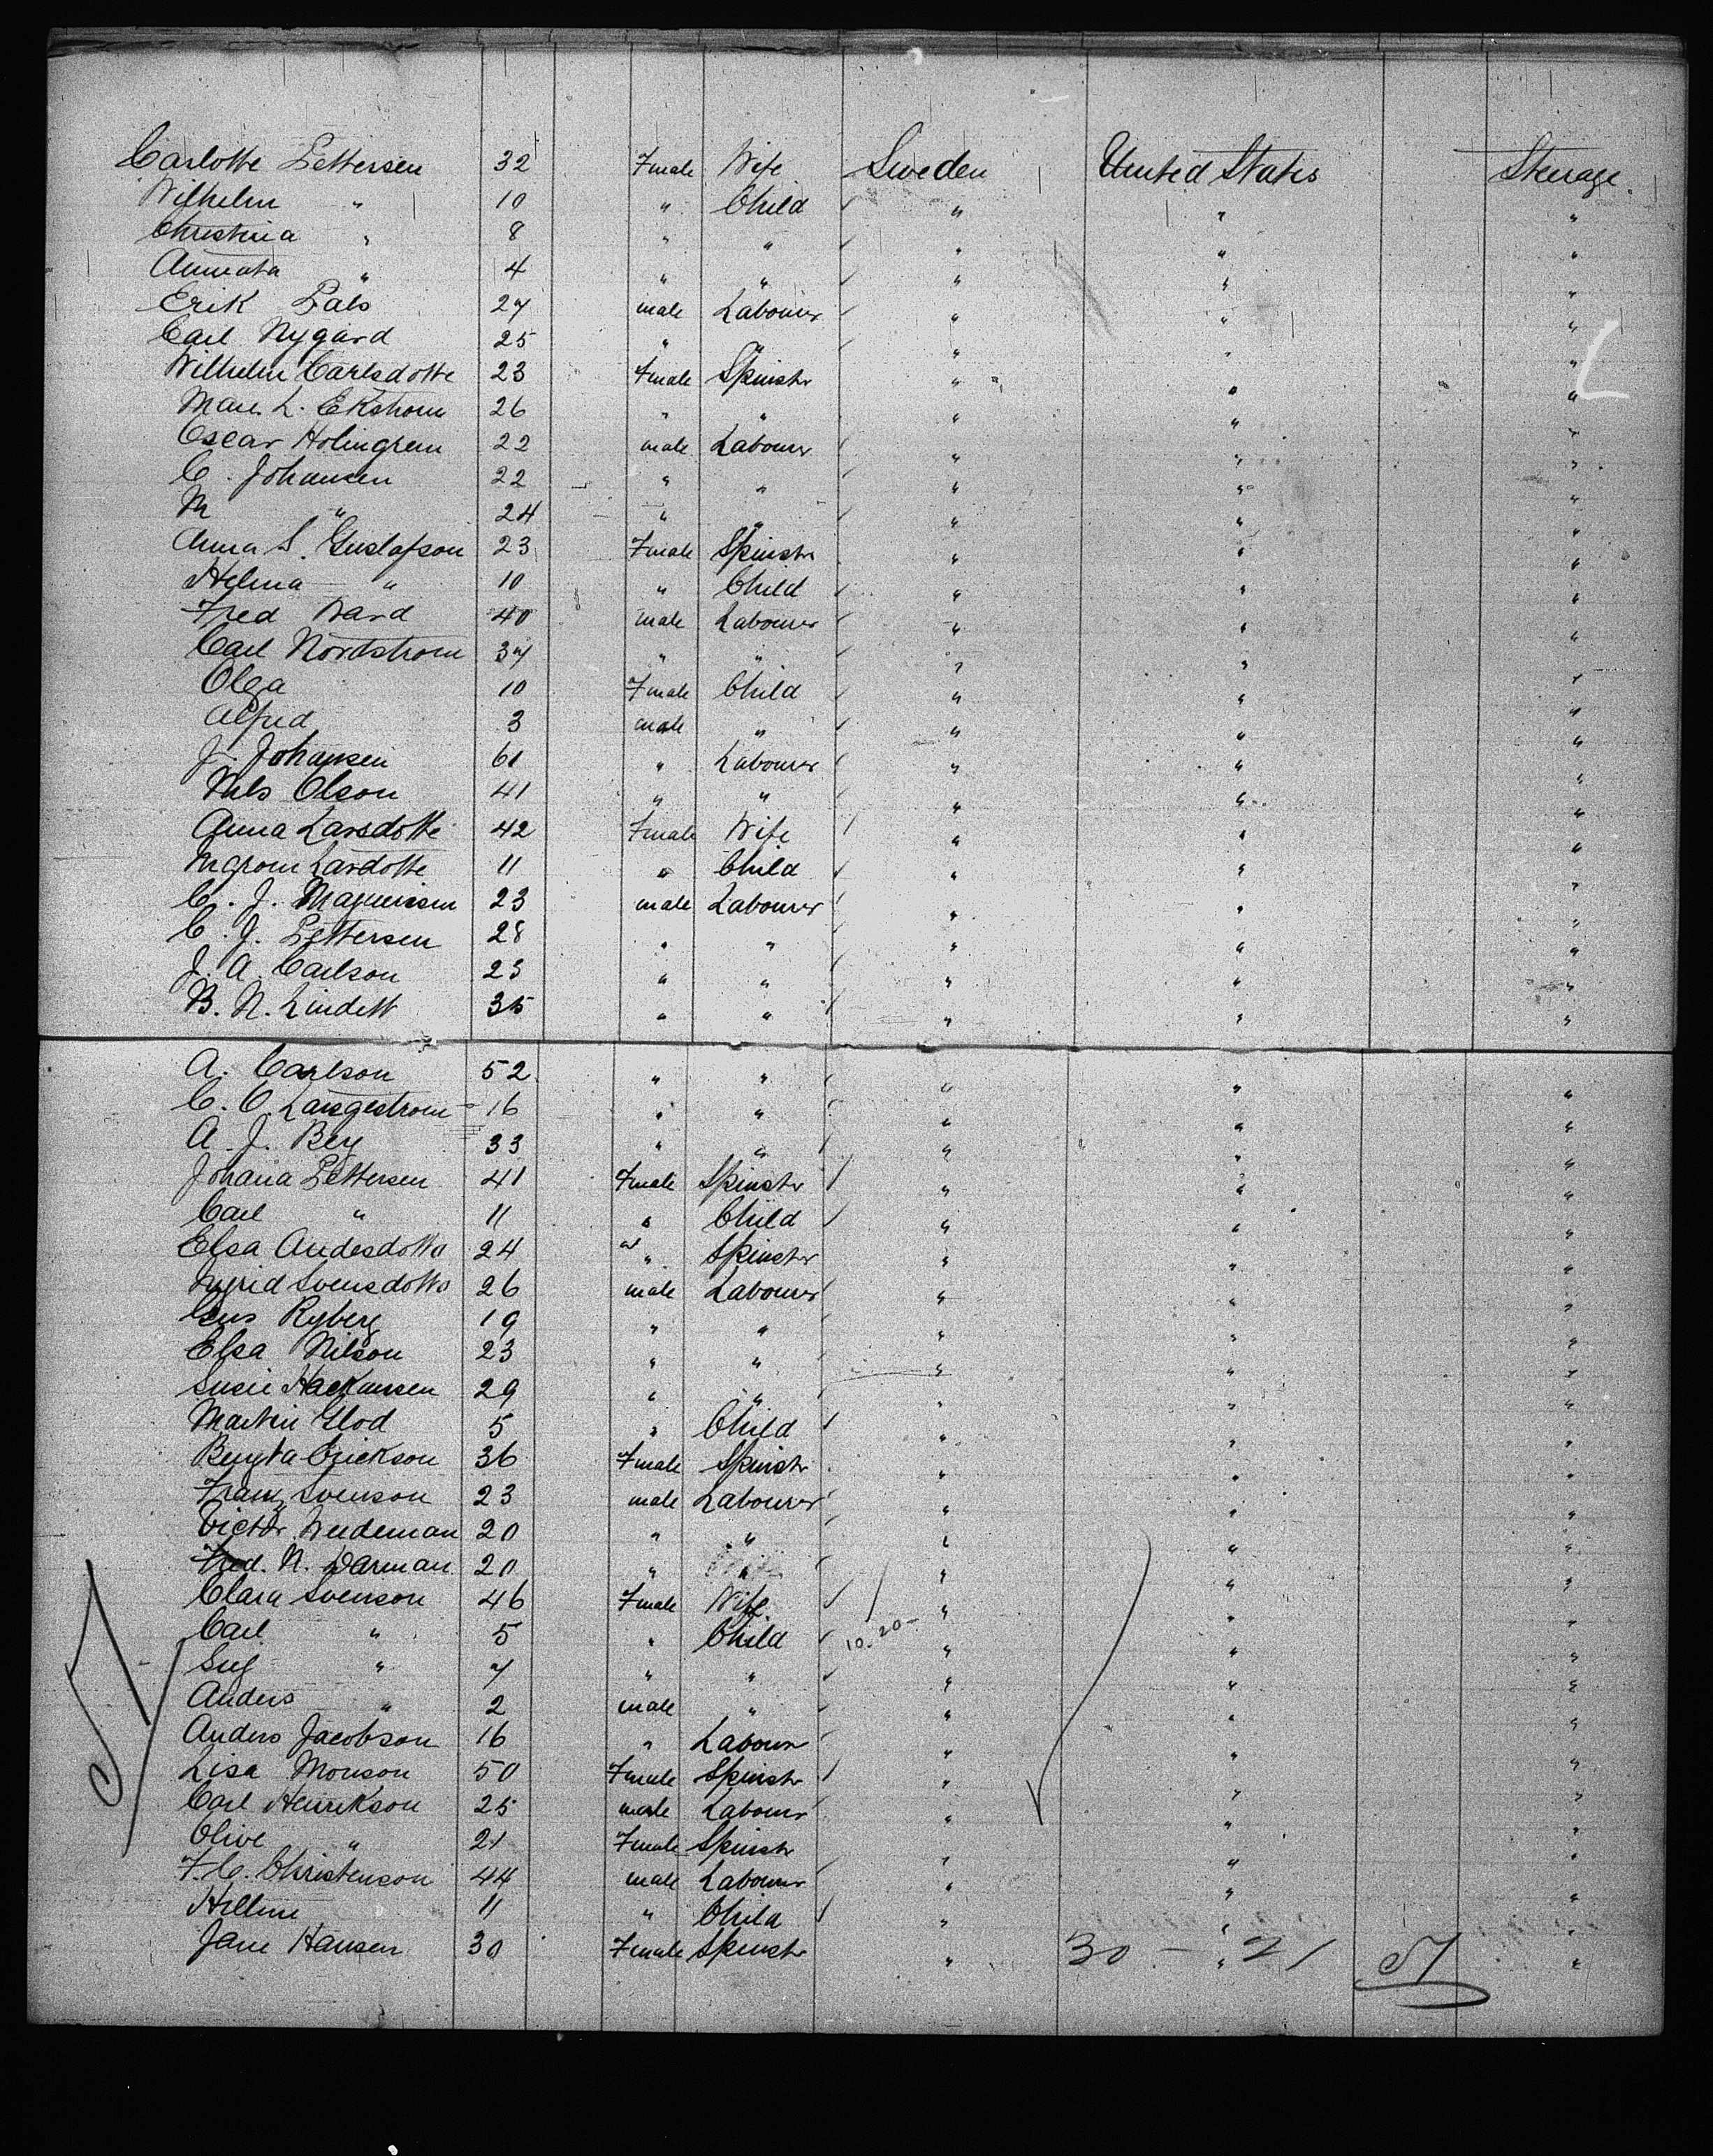 Carlotte Pettersen 32 Female Wife Sweden United States Steerage
Wilhelm " 10 " Child " " "
Christina " 8 " " " " "
" 4 " " " " "
Erik 27 male Labourer " " "
Carl Nygard 25 " " " " "
Wilhelm Carlsdotte 23 Female Spinstr " " "
L. Ekstrom 26 " " " " "
Oscar Holmgren 22 male Labourer " " "
C. Johansen 22 " " " " "
M " 24 " " " " "
Anna S. Gustafson 23 Female Spinstr " " "
Helma " 10 " Child " " "
Fred Ward 40 male Labourer " " "
Carl Nordstrom 37 " " " " "
Olga 10 Female Child " " "
Alfred 3 male " " " "
J. Johansen 61 " Labourer " " "
Nels Olson 41 " " " " "
Anna Larsdotte 42 Female Wife " " "
Lardotte 11 " Child " " "
C. J. Magnusen 23 male Labourer " " "
C. J. Pettersen 28 " " " " "
J. A. Carlson 23 " " " " "
B. N. Lindett 35 " " " " "
A. Carlson 52 " " " " "
C. O. Langestrom 16 " " " " "
A. J. Berg 33 " " " " "
Johana Pettersen 41 Female Spinstr " " "
Carl " 11 " Child " " "
Elsa Andesdotta 24 " Spinstr " " "
Ingrid Svensdotta 26 male Labourer " " "
Gus Ryberg 19 " " " " "
Elsa Nilson 23 " " " " "
Susie Hackansen 29 " " " " "
Martin Glod 5 " Child " " "
Bengta Erickson 36 Female Spinstr " " "
Franz Svenson 23 male Labourer " " "
Victor Weedeman 20 " " " " "
Fred. N. Darman 20 " " " " "
Clara Svenson 46 Female Wife " " "
Carl " 5 " Child 10.20- " " "
" 7 " " " " "
Anders " 2 male " " " "
Anders Jacobson 16 " Labour " " "
Lisa Monson 50 Female Spinstr " " "
Carl Henrikson 25 male Labour " " "
Olive " 21 Female Spinstr " " "
F. C. Christenson 44 male Labourer " " "
11 " Child " " "
Jane Hansen 30 Female Spinstr " " "
30 - 21 51
51